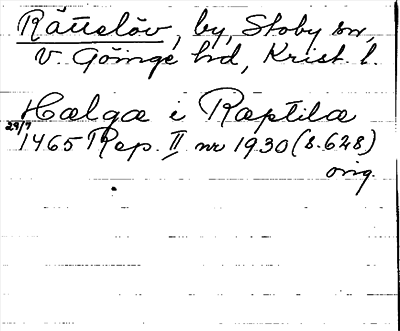 Rättelöv, by, Stoby sn,
V. Göinge hd, Krist. l.
Hælgæ i Ræptilæ
29/7 1465 Rep. II nr 1930 (s. 628)
orig.